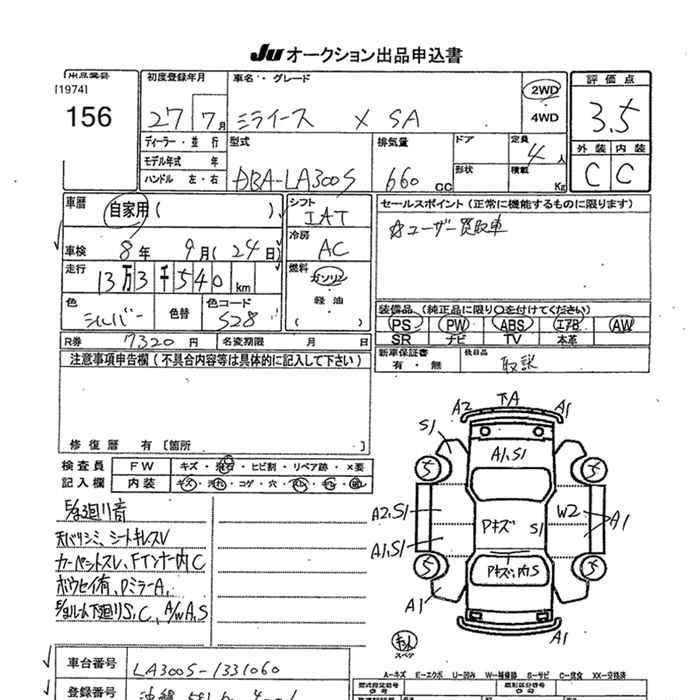 Ju オークション出品申込書
出品番号
[1974]
156
初度登録年月
27 7月
車名・グレード
ミライース X SA
2WD
4WD
評価点
3.5
外装 内装
C C
ディーラー・並行
モデル年式 年
ハンドル 左・右
型式
DBA-LA300S
排気量
660 CC
ドア
形状
定員
4人
積載
Kg
車歴
自家用 ( )
車検 8年 9月 (24日)
走行
13万3千540 km
色
シルバー
色替
色コード
S28
シフト
IAT
冷房
AC
燃料
ガソリン
軽油
( )
セールスポイント (正常に機能するものに限ります)
☆ユーザー買取車
装備品 (純正品に限り○を付けてください)
PS PW ABS エアB AW
SR ナビ TV 本革
新車保証書
有・無
後日品
取説
R券 7320 円 名変期限 月 日
注意事項申告欄 (不具合内容等は具体的に記入して下さい)
修復歴 有 [箇所 ]
検査員 FW キズ・飛石・ヒビ割・リペア跡・×要
記入欄 内装 キズ・汚れ・コゲ・穴・
廻り音
天バリシミ、シートキレスレV
カーペットスレ、Fインナー内C
ボウセイ有、DミラーA、
下廻りS,C、A/WA,S
A2 下A A1
S1
A1,S1
5 5
A2,S1
A1,S1
Pキズ S1
W2
A1
5 5
Pキズ、内S
A1
A1
スペア
A…キズ E…エクボ U…凹み W…補修跡 S…サビ C…腐食 XX…交換済
車台番号 LA300S-1331060
登録番号 沖縄
型式指定番号
類別区分番号